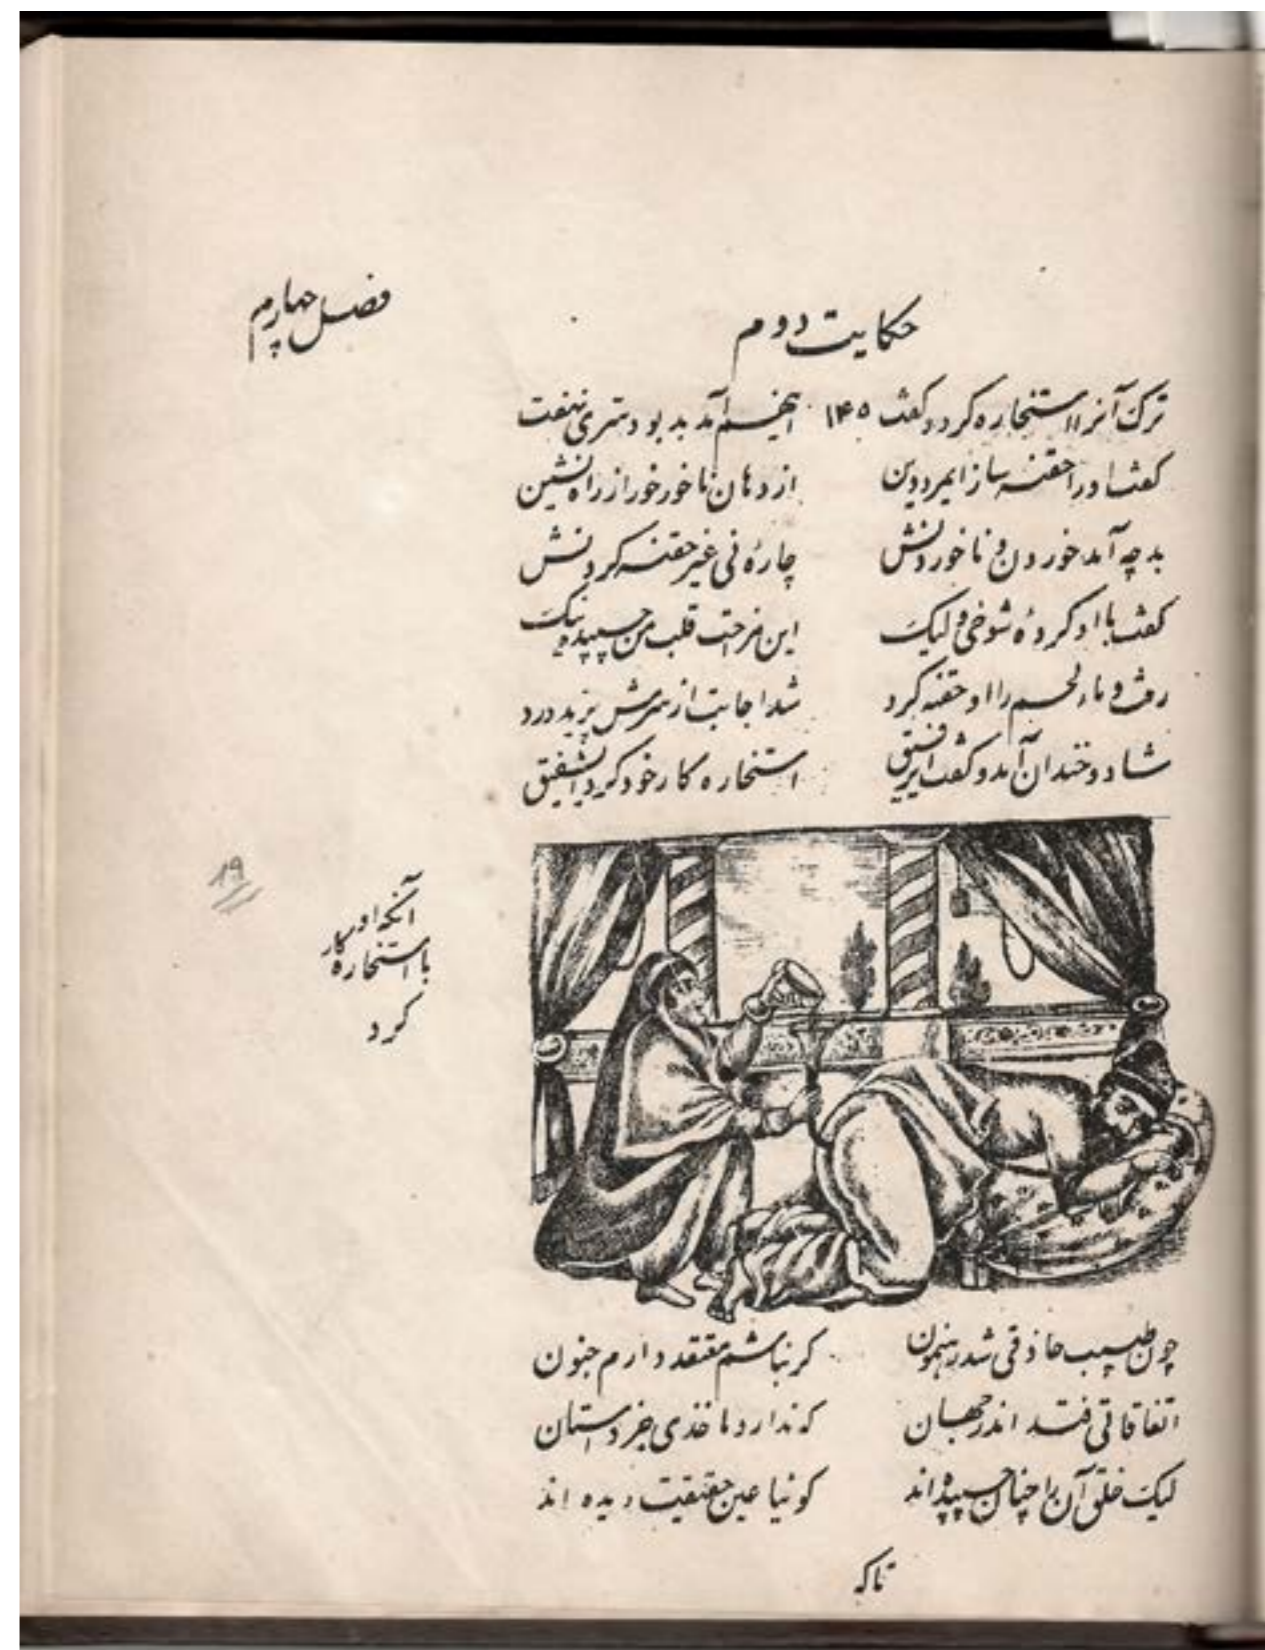 فصل چهارم
حکایت دوم
ترک آنرا استخاره کرد و گفت ۱۴۵ اینهم آمد بد بود سری نهفت
گفت او را حقنه ساز ای مرد دین از دهان ناخور خوراز راه نشین
بد چه آمد خوردن و ناخوردنش چارهٔ نی غیر حقنه کردنش
گفت با او کردهٔ شوخی و لیک این مزاحت قلب من چسپیده نیک
رفت و ماءلحم را او حقنه کرد شد اجابت از سرش پرید درد
شاد و خندان آمد و گفت ای رفیق استخاره کار خود کرد ای شفیق
۱۹
آنکه او
با استخاره کار
کرد
چون طبیب حاذقی شد رهنمون گر نباشم معتقد دارم جنون
اتفاقاتی فتد اندر جهان که ندارد ماخذی جز داستان
لیک خلق آن را چنان چسپیده‌اند گوئیا عین حقیقت دیده اند
تا که